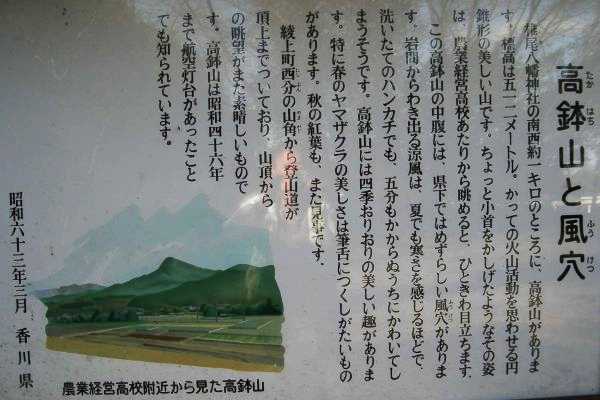 高鉢山と風穴
たか はち ふう けつ
鞍尾八幡神社の南西約一キロのところに、高鉢山がありま
す。標高は五一二メートル。かつての火山活動を思わせる円
錐形の美しい山です。ちょっと小首をかしげたようなその姿
は、農業経営高校あたりから眺めると、ひときわ目立ちます。
この高鉢山の中腹には、県下ではめずらしい風穴がありま
す。岩間からわき出る涼風は、夏でも寒さを感じるほどで、
洗いたてのハンカチでも、五分もかからぬうちにかわいてし
まうそうです。高鉢山には四季おりおりの美しい趣がありま
す。特に春のヤマザクラの美しさは筆舌につくしがたいもの
があります。秋の紅葉も、また見事です。
綾上町西分の山角から登山道が
頂上までついており、山頂から
の眺望がまた素晴しいもので
す。高鉢山は昭和四十六年
まで航空灯台があったこと
でも知られています。
昭和六十三年三月 香川県
農業経営高校附近から見た高鉢山